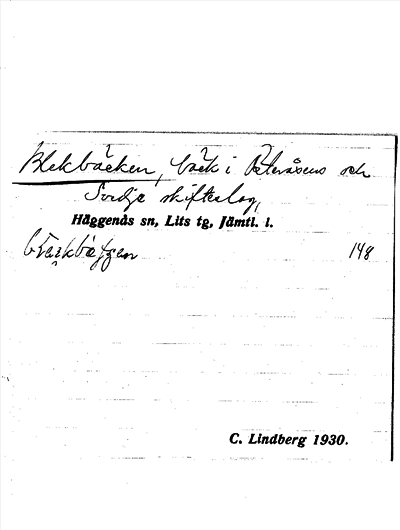 Blekbäcken, bäck i Österåsens och
Sordje skifteslag,
Häggenås sn, Lits tg, Jämtl. l.
148
C. Lindberg 1930.